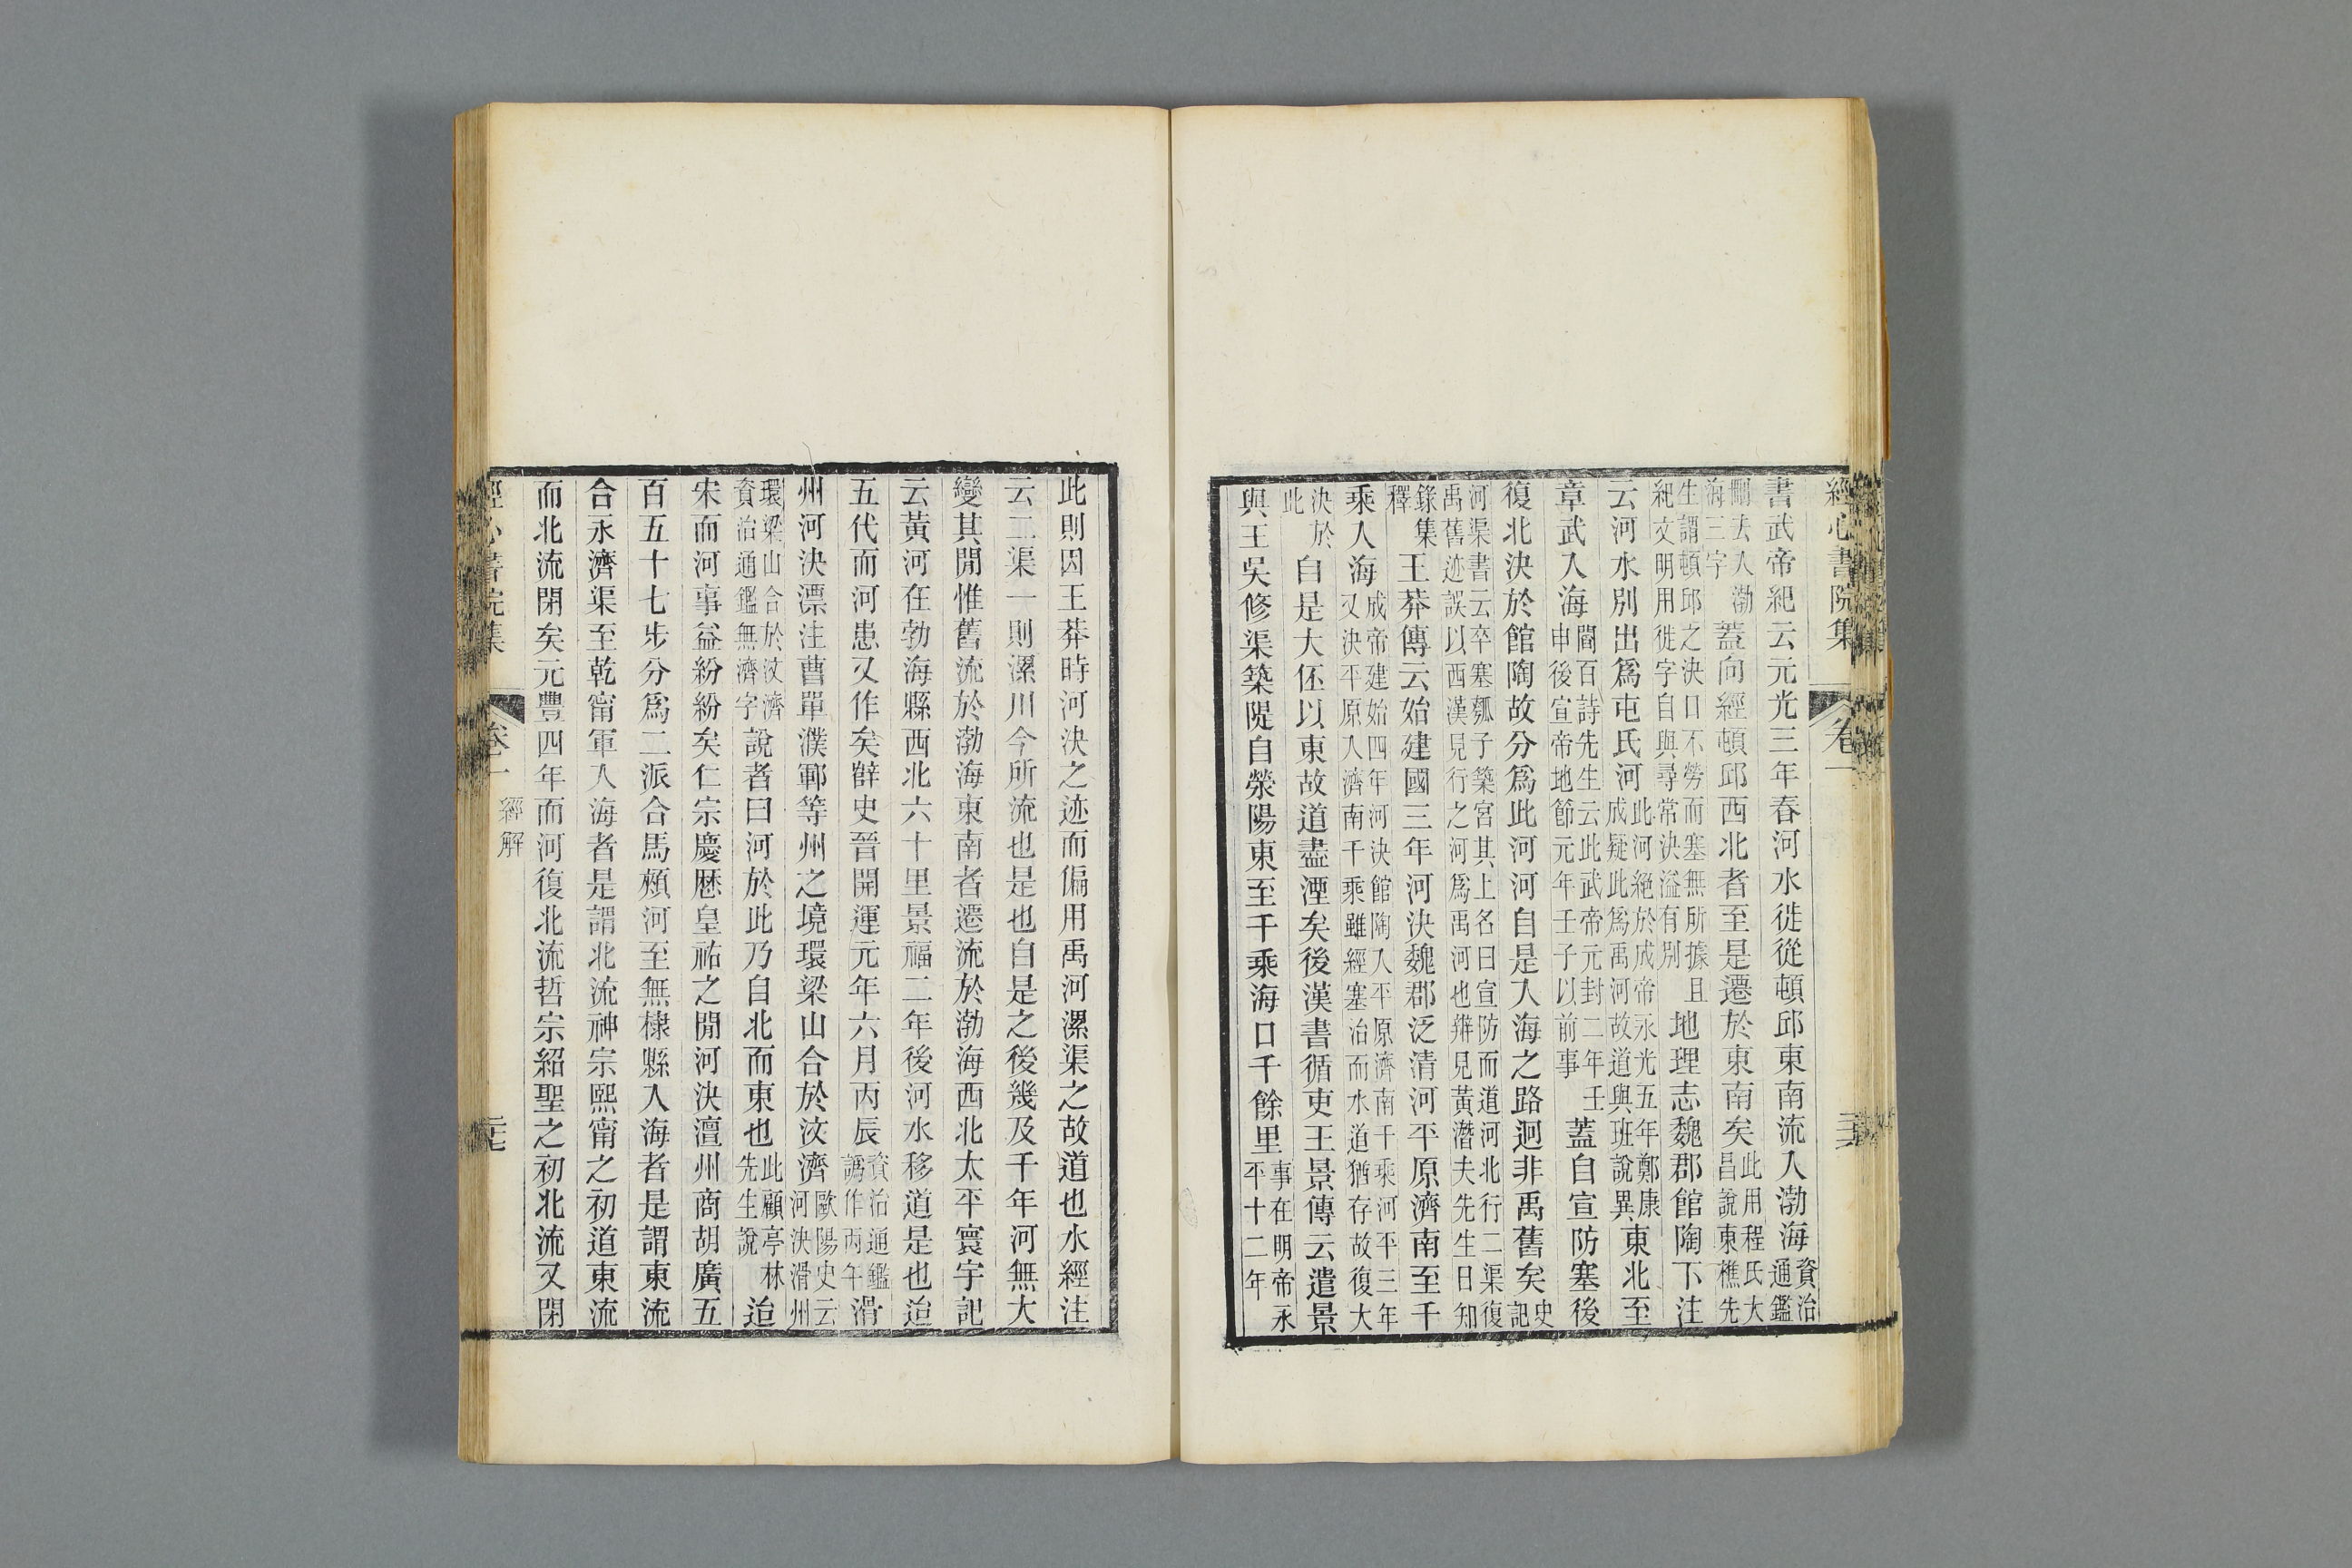 經心書院集 卷一
書武帝紀云元光三年春河水徙從頓邱東南流入渤海資治通鑑
刪去入渤海三字蓋向經頓邱西北者至是遷於東南矣此用程氏大昌說東樵先
生謂頓邱之決口不勞而塞無所據且紀文明用徙字自與尋常決溢有別地理志魏郡館陶下注
云河水別出爲屯氏河此河絕於成帝永光五年鄭康成疑此爲禹河故道與班說異東北至
章武入海閻百詩先生云此武帝元封二年壬申後宣帝地節元年壬子以前事蓋自宣防塞後
復北決於館陶故分爲此河河自是入海之路迥非禹舊矣史記
河渠書云卒塞瓠子築宮其上名曰宣防而道河北行二渠復禹舊迹誤以西漢見行之河爲禹河也辨見黃潛夫先生日知
錄集釋王莽傳云始建國三年河決魏郡泛清河平原濟南至千
乘入海成帝建始四年河決館陶入平原濟南千乘河平三年又決平原入濟南千乘雖經塞治而水道猶存故復大
決於此自是大伾以東故道盡湮矣後漢書循吏王景傳云遣景
與王吳修渠築隄自滎陽東至千乘海口千餘里事在明帝永平十二年
此則因王莽時河決之迹而偏用禹河漯渠之故道也水經注
云二渠一則漯川今所流也是也自是之後幾及千年河無大
變其閒惟舊流於渤海東南者遷流於渤海西北太平寰宇記
云黃河在勃海縣西北六十里景福二年後河水移道是也迨
五代而河患又作矣薛史晉開運元年六月丙辰資治通鑑譌作丙午滑
州河決漂注曹單濮鄆等州之境環梁山合於汶濟歐陽史云河決滑州
環梁山合於汶濟資治通鑑無濟字說者曰河於此乃自北而東也此顧亭林先生說迨
宋而河事益紛紛矣仁宗慶歷皇祐之閒河決澶州商胡廣五
百五十七步分爲二派合馬頰河至無棣縣入海者是謂東流
合永濟渠至乾甯軍入海者是謂北流神宗熙甯之初道東流
而北流閉矣元豐四年而河復北流哲宗紹聖之初北流又閉
經心書院集 卷一 經解